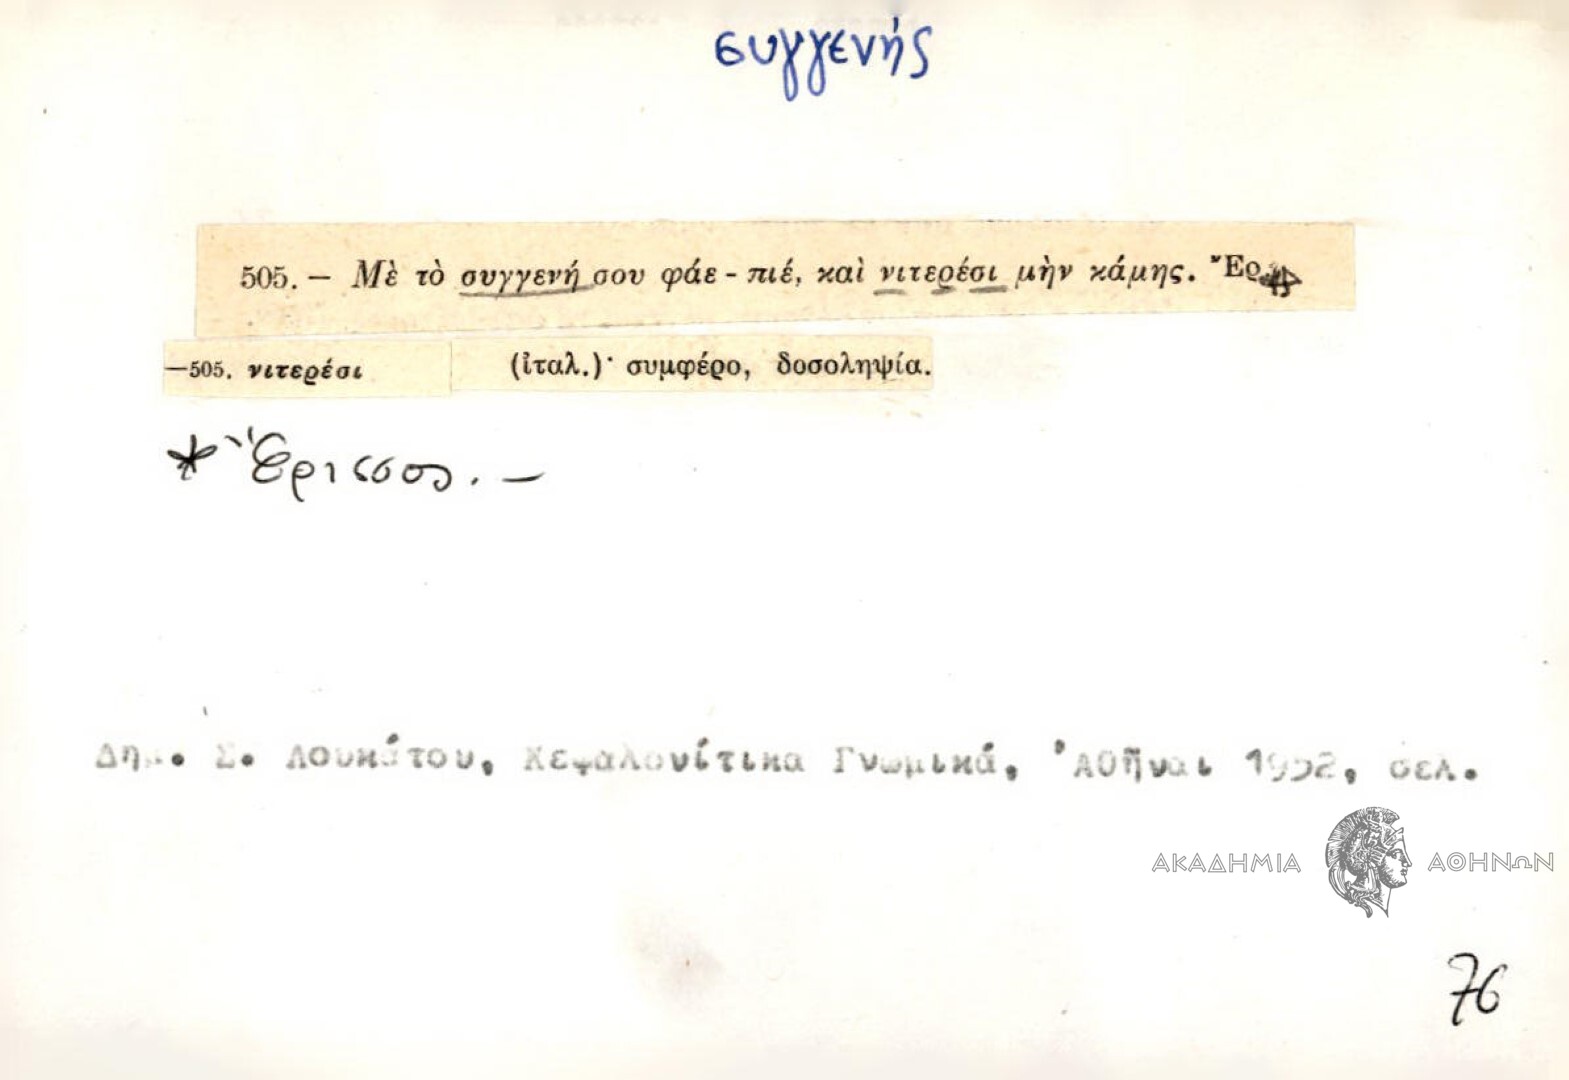 συγγενής
505. — Μὲ τὸ συγγενή σου φάε - πιέ, καὶ νιτερέσι μὴν κάμης. Ἔρ
—505. νιτερέσι (ἰταλ.)· συμφέρο, δοσοληψία.
* Ἔρισσος. —
Δημ. Σ. Λουκάτου, Κεφαλονίτικα Γνωμικά, Ἀθῆναι 1952, σελ.
ΑΚΑΔΗΜΙΑ ΑΘΗΝΩΝ
76